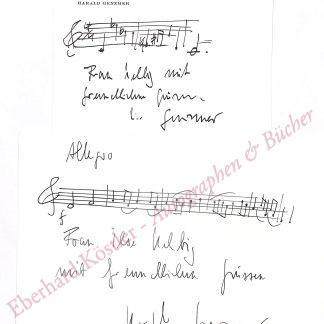 HARALD GENZMER
Frau Helbig mit
freundlichen Grüssen
Genzmer
Allegro
f
Frau Ilse Helbig
mit freundlichen Grüssen
Eberhard Köstler - Autographen & Bücher